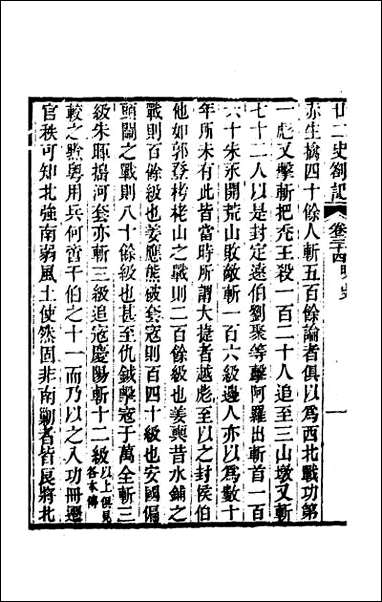 廿二史劄記　卷三十四　明史
亦生擒四十餘人斬五百餘論者俱以爲西北戰功第
一彪又擊斬把禿王殺一百二十人追至三山墩又斬
七十二人以是封定遠伯劉聚等擊阿羅出斬首一百
六十朱永開荒山敗敵斬一百六級邊人亦以爲數十
年所未有此皆當時所謂大捷者越彪至以之封侯伯
他如郭登栲栳山之戰則二百餘級也姜奭昔水鋪之
戰則百餘級也姜應熊破套寇則百四十級也安國偏
頭關之戰則八十餘級也甚至仇鉞擊寇于萬全斬三
級朱暉搗河套亦斬三級追寇慶陽斬十二級以上俱見各本傳
較之熬粤用兵何啻千伯之十一而乃以之入功冊遷
官秩可知北強南弱風土使然固非南勦者皆良將北